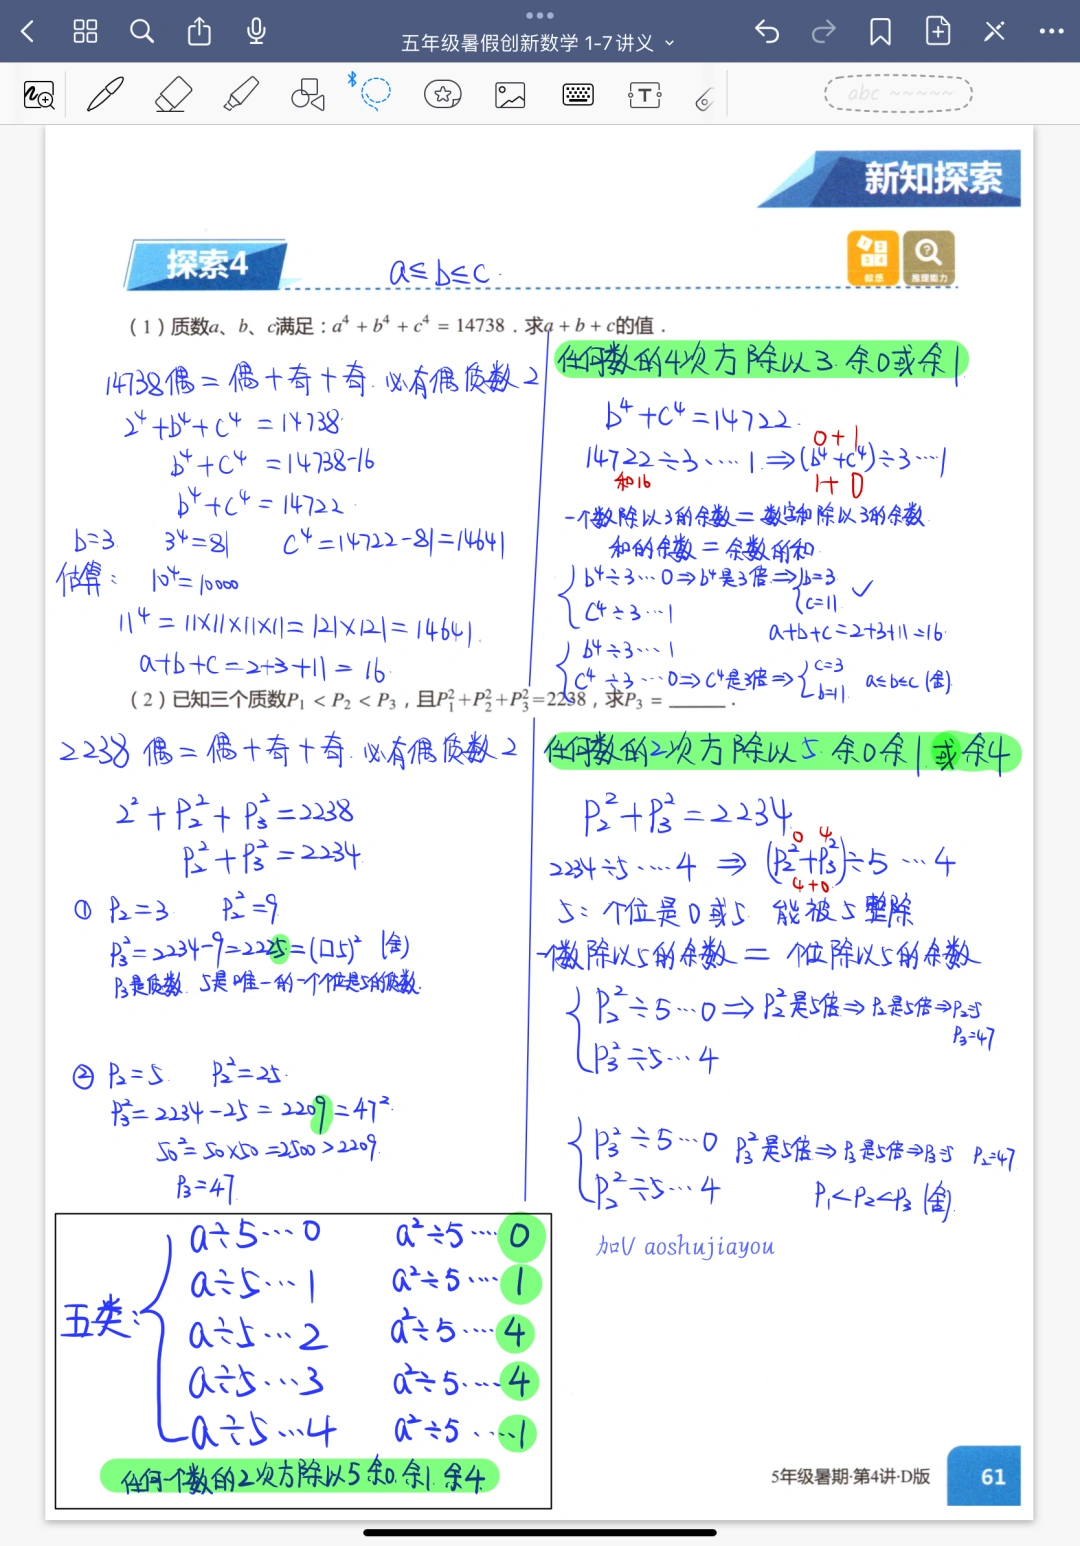 五年级暑假创新数学 1-7讲义
abc ~~~~~
新知探索
探索4
a≤b≤c.
数感
推理能力
（1）质数a、b、c满足：a⁴ + b⁴ + c⁴ = 14738．求a + b + c的值．
14738偶 = 偶 + 奇 + 奇. 必有偶质数2
2⁴+b⁴+c⁴ = 14738
b⁴+c⁴ = 14738-16
b⁴+c⁴ = 14722
b=3 3⁴=81 c⁴=14722-81=14641
估算: 10⁴=10000
11⁴ = 11×11×11×11 = 121×121 = 14641.
a+b+c = 2+3+11 = 16.
任何数的4次方除以3. 余0或余1
b⁴+c⁴=14722.
0+1
14722÷3····1 ⇒ (b⁴+c⁴)÷3···1
和16
1+0
一个数除以3的余数 = 数字和除以3的余数
和的余数 = 余数的和
b⁴÷3···0 ⇒ b⁴是3倍 ⇒ b=3
c⁴÷3···1 c=11 ✓
a+b+c=2+3+11=16.
b⁴÷3···1
c⁴÷3···0 ⇒ c⁴是3倍 ⇒ c=3
b=11. a≤b≤c (舍)
（2）已知三个质数P₁ < P₂ < P₃，且P₁²+P₂²+P₃²=2238，求P₃ = ______．
2238 偶 = 偶 + 奇 + 奇. 必有偶质数2
2²+P₂²+P₃²=2238
P₂²+P₃²=2234
① P₂=3 P₂²=9
P₃²=2234-9=2225=(口5)² (舍)
P₃是质数. 5是唯一的一个个位是5的质数.
② P₂=5. P₂²=25.
P₃²=2234-25=2209=47².
50²=50×50=2500>2209.
P₃=47
任何数的2次方除以5. 余0余1.或余4
P₂²+P₃²=2234
0 4
2234÷5····4 ⇒ (P₂²+P₃²)÷5···4
4+0
5: 个位是0或5 能被5整除
一个数除以5的余数 = 个位除以5的余数
P₂²÷5···0 ⇒ P₂²是5倍 ⇒ P₂是5倍 ⇒ P₂=5
P₃=47
P₃²÷5···4
P₃²÷5···0 P₃²是5倍 ⇒ P₃是5倍 ⇒ P₃=5 P₂=47
P₂²÷5···4 P₁<P₂<P₃ (舍)
加V aoshujiayou
五类:
a÷5···0 a²÷5····0
a÷5···1 a²÷5····1
a÷5···2 a²÷5····4
a÷5···3 a²÷5····4
a÷5···4 a²÷5····1
任何一个数的2次方除以5余0.余1.余4
5年级暑期·第4讲·D版
61